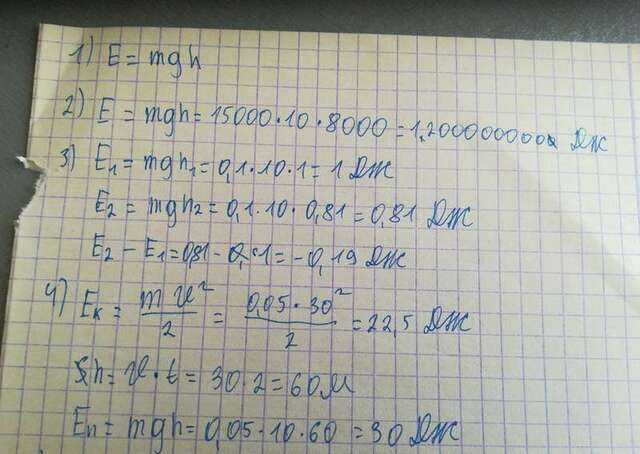 1) E = mgh
2) E = mgh = 15000·10·8000 = 1,200000000 Дж
3) E₁ = mgh₁ = 0,1·10·1 = 1 Дж
E₂ = mgh₂ = 0,1·10·0,81 = 0,81 Дж
E₂ – E₁ = 0,81 – 1 = – 0,19 Дж
4) Eк = mv²/2 = 0,05·30²/2 = 22,5 Дж
h = v·t = 30·2 = 60 м
Eп = mgh = 0,05·10·60 = 30 Дж